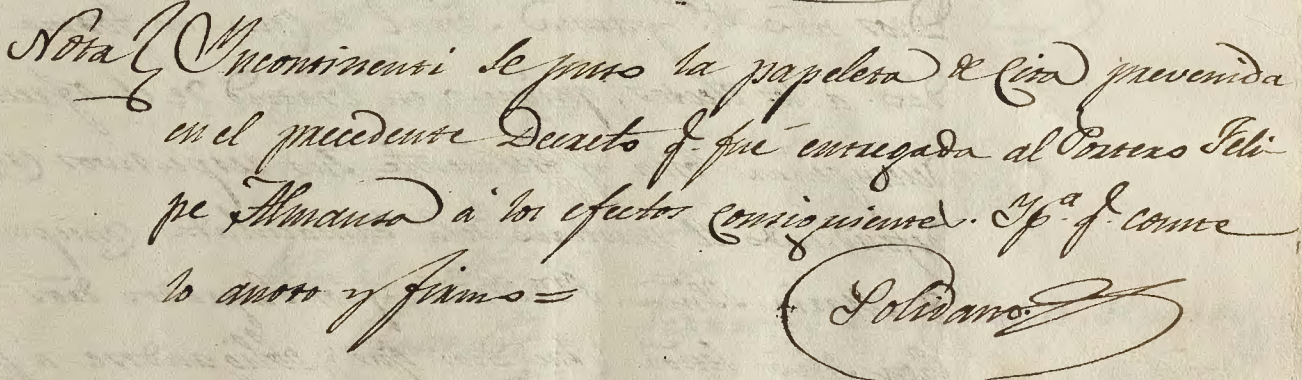 Nota Yncontinenti se puso la papeleta de Cita prevenida
en el precedente Decreto q.e fué entregada al Portero Feli-
pe Almansa á los efectos consiguientes. Y p.a q.e conste
lo anoto y firmo =
Solidano.